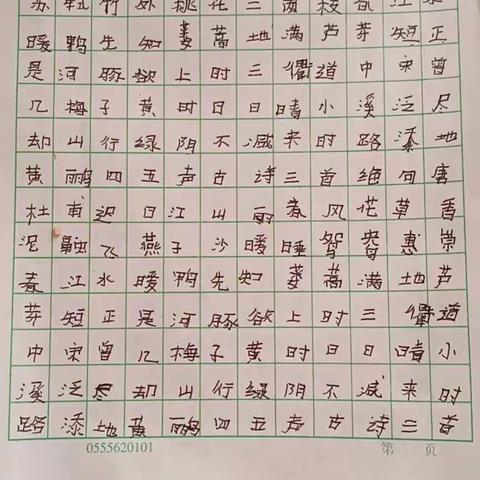 苏轼竹外桃花三两枝春江水
暖鸭先知蒌蒿地满芦芽短正
是河豚欲上时三衢道中宋曾
几梅子黄时日日晴小溪泛尽
却山行绿阴不减来时路添地
黄鹂四五声古诗三首绝句唐
杜甫迟日江山丽春风花草香
泥融飞燕子沙暖睡惠崇
春江水暖鸭先知蒌蒿满地芦
芽短正是河豚欲上时三衢道
中宋曾几梅子黄时日日晴小
溪泛尽却山行绿阴不减来时
路添地黄鹂四五声古诗三首
0555620101 第 页